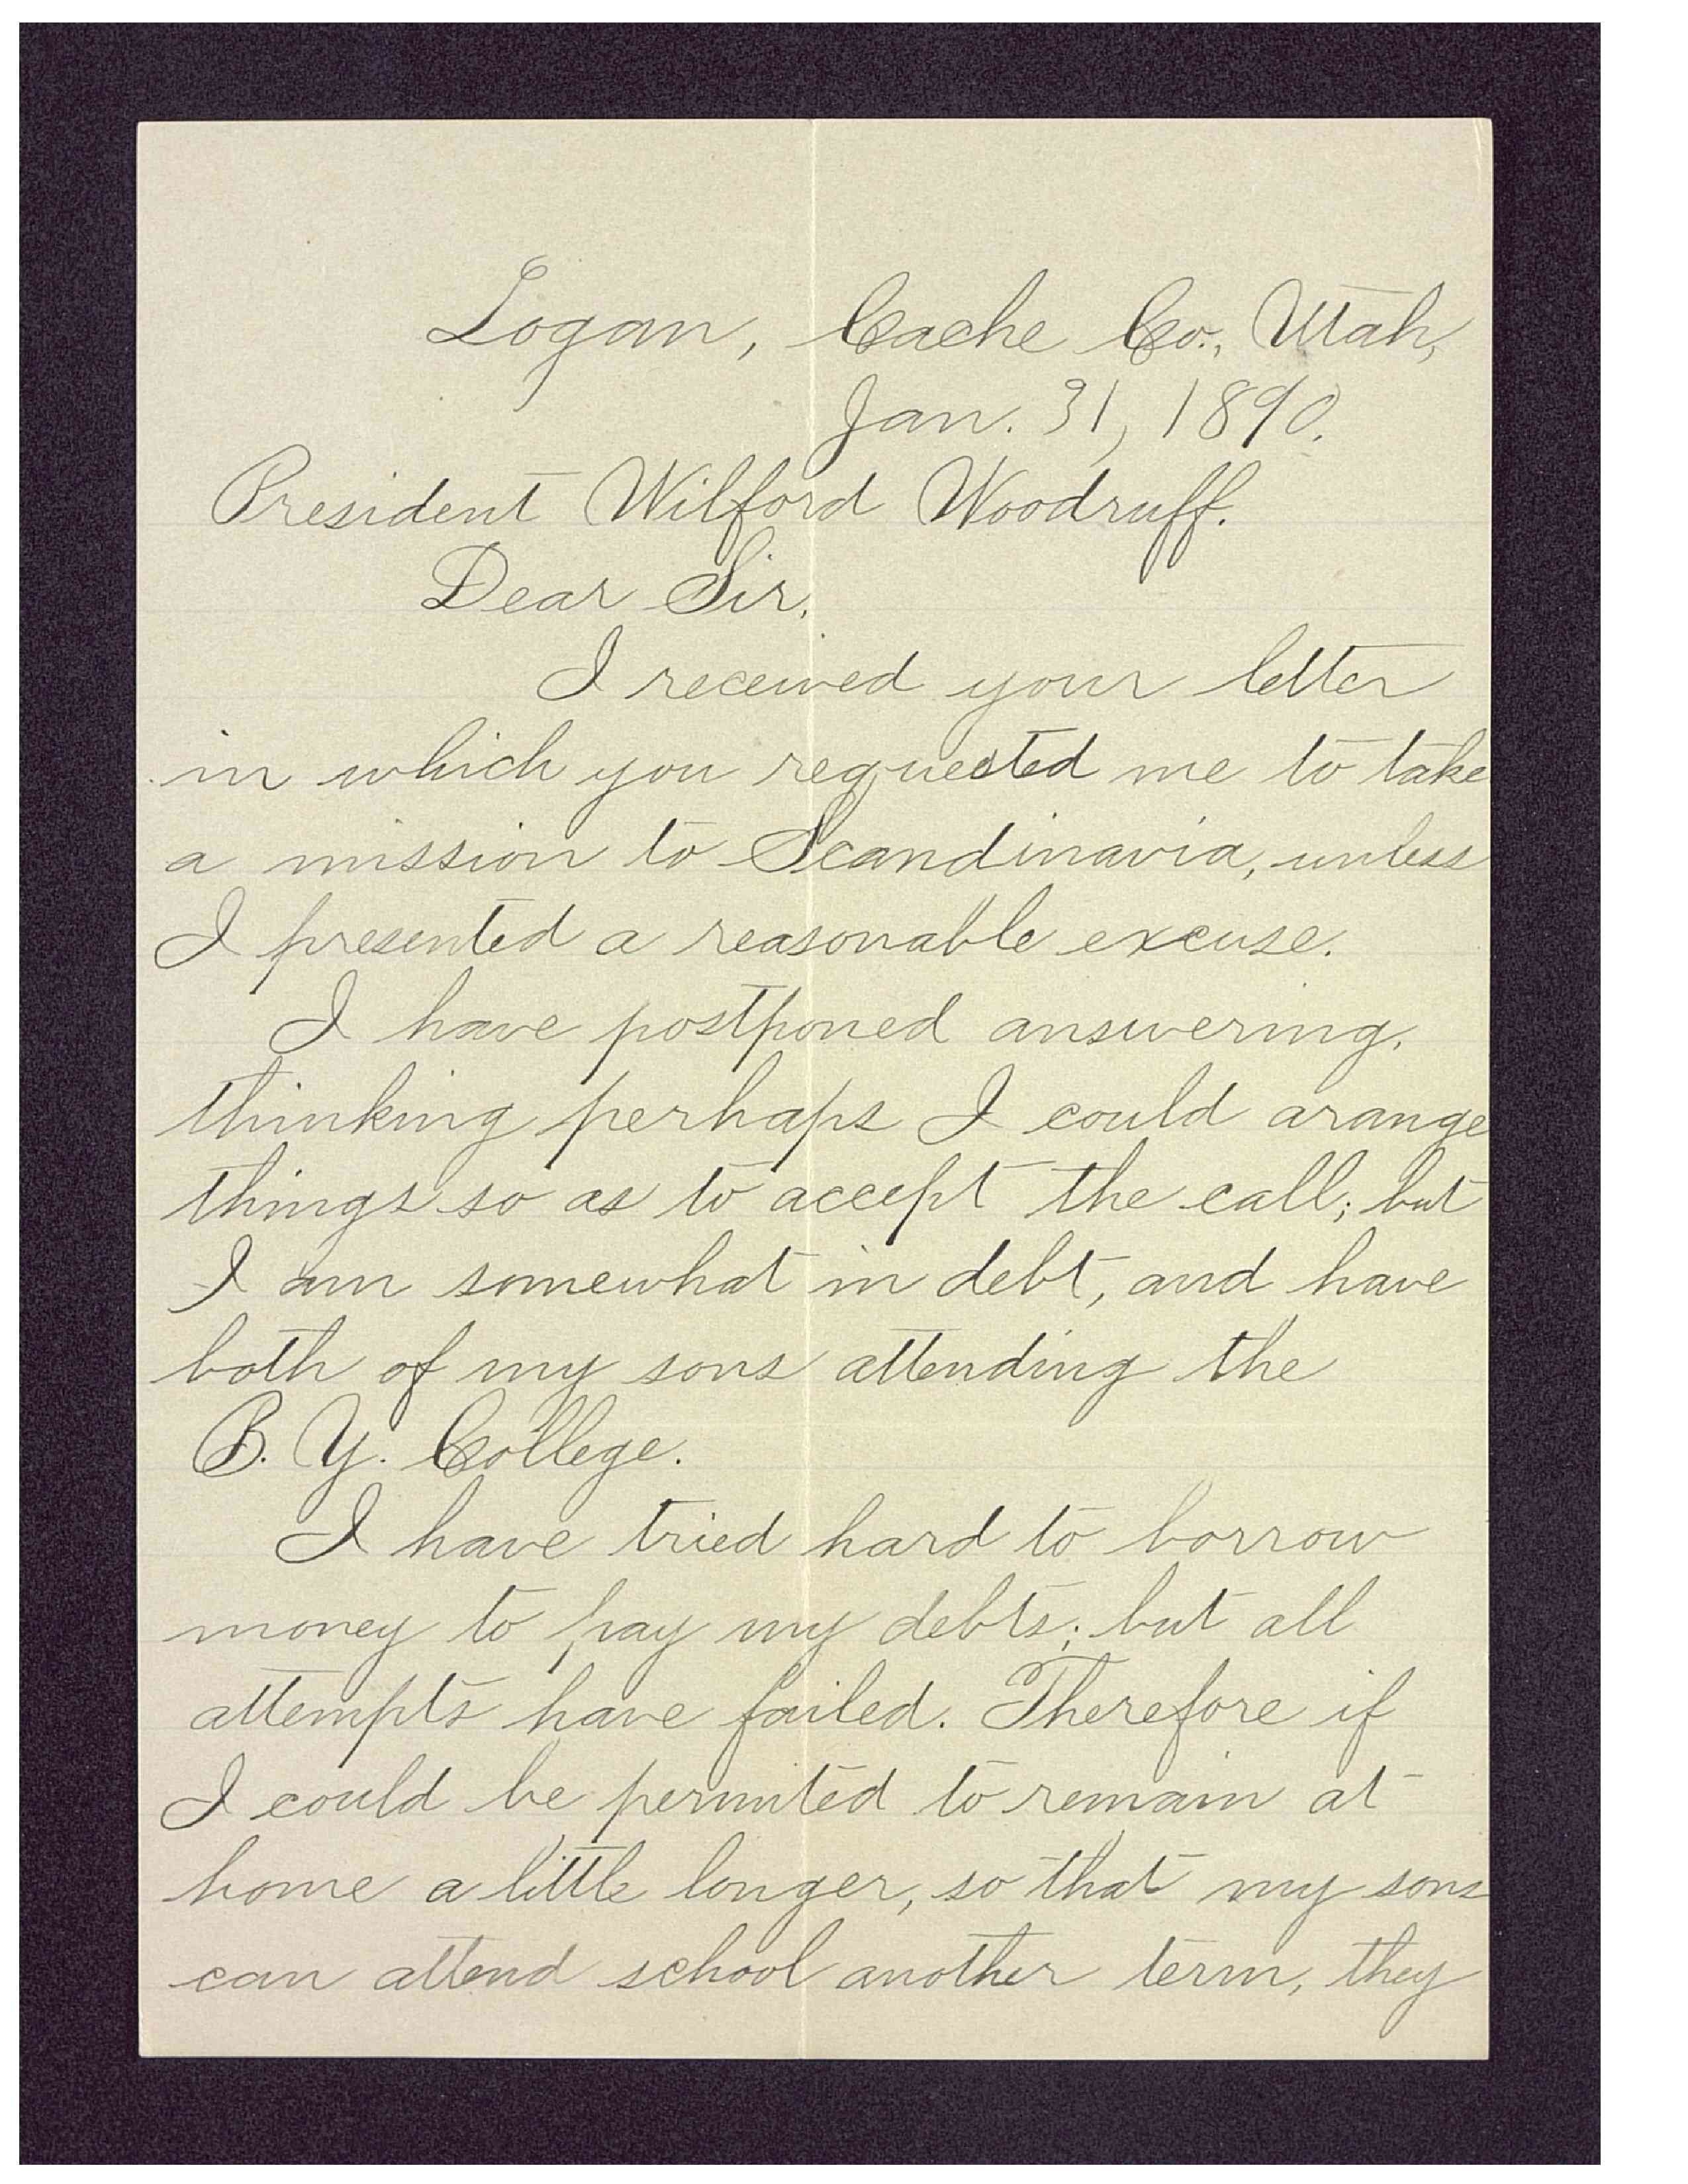 Logan, Cache Co., Utah,
Jan. 31, 1890.
President Wilford Woodruff.
Dear Sir.
I received your letter
in which you requested me to take
a mission to Scandinavia, unless
I presented a reasonable excuse.
I have postponed answering,
thinking perhaps I could arange
things so as to accept the call; but
I am somewhat in debt, and have
both of my sons attending the
B. Y. College.
I have tried hard to borrow
money to pay my debts; but all
attempts have failed. Therefore if
I could be permited to remain at
home a little longer, so that my sons
can attend school another term, they